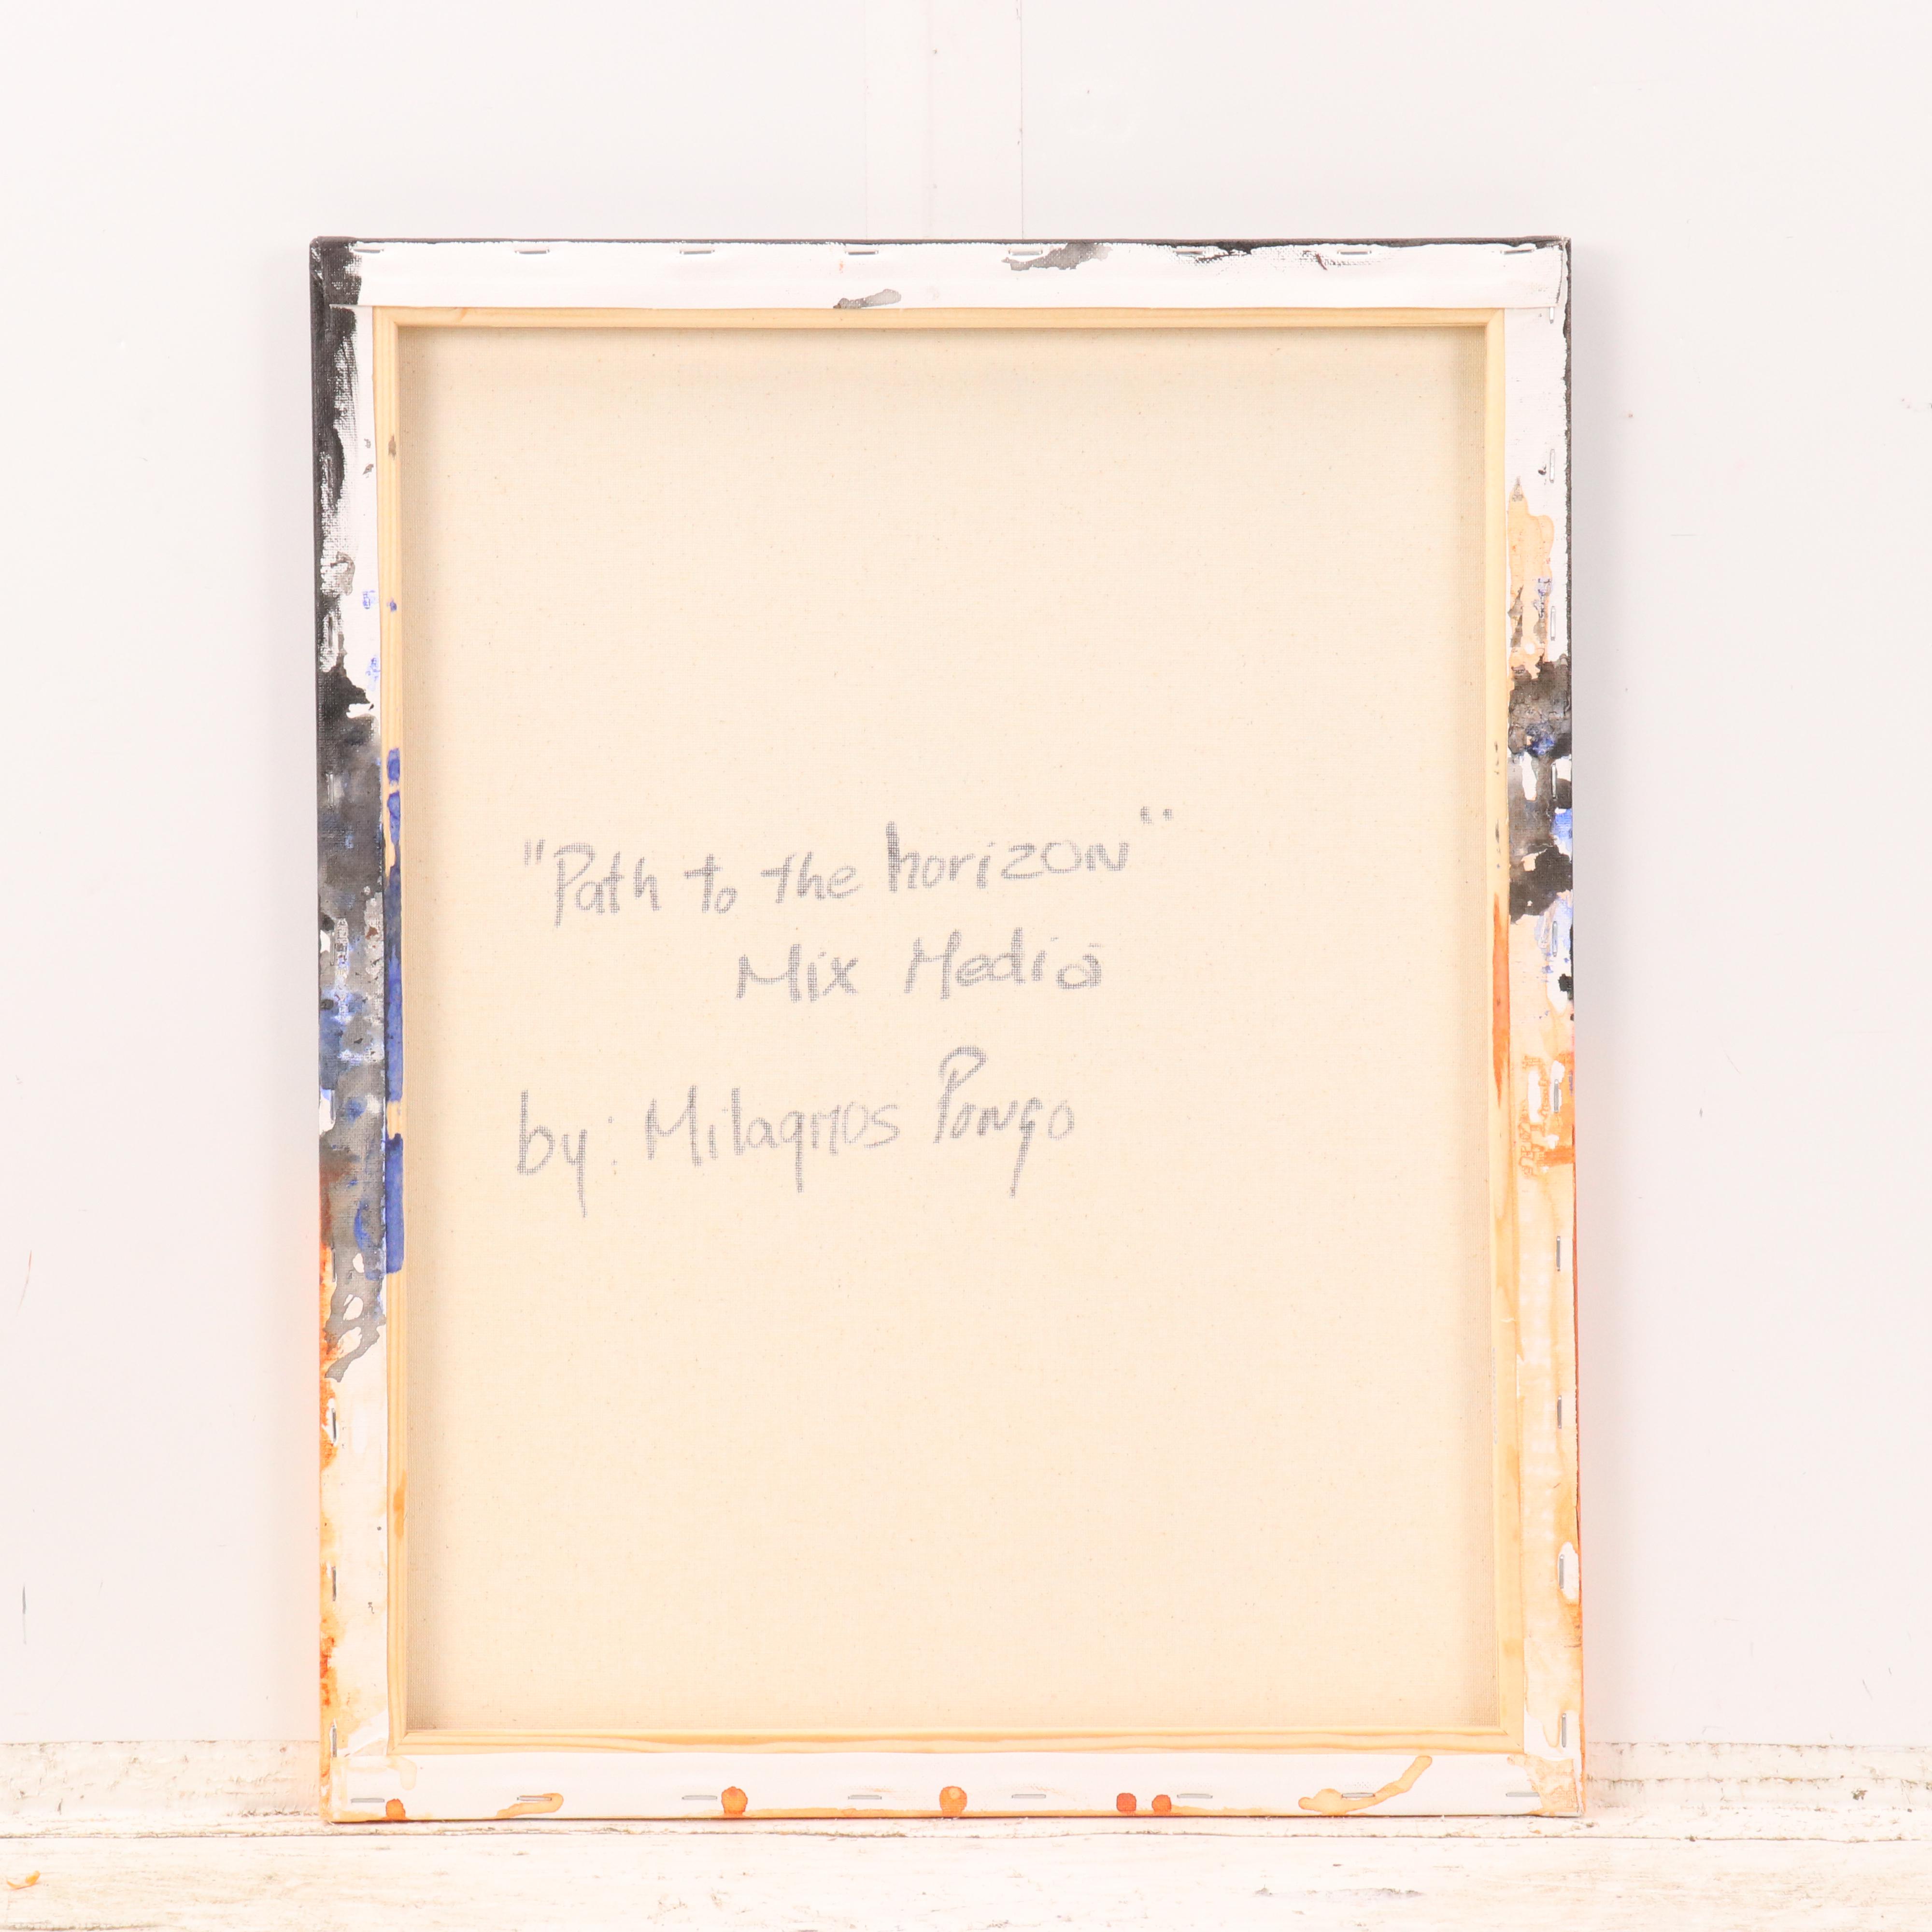 "Path to the horizon"
Mix Media
by: Milagros Pongo